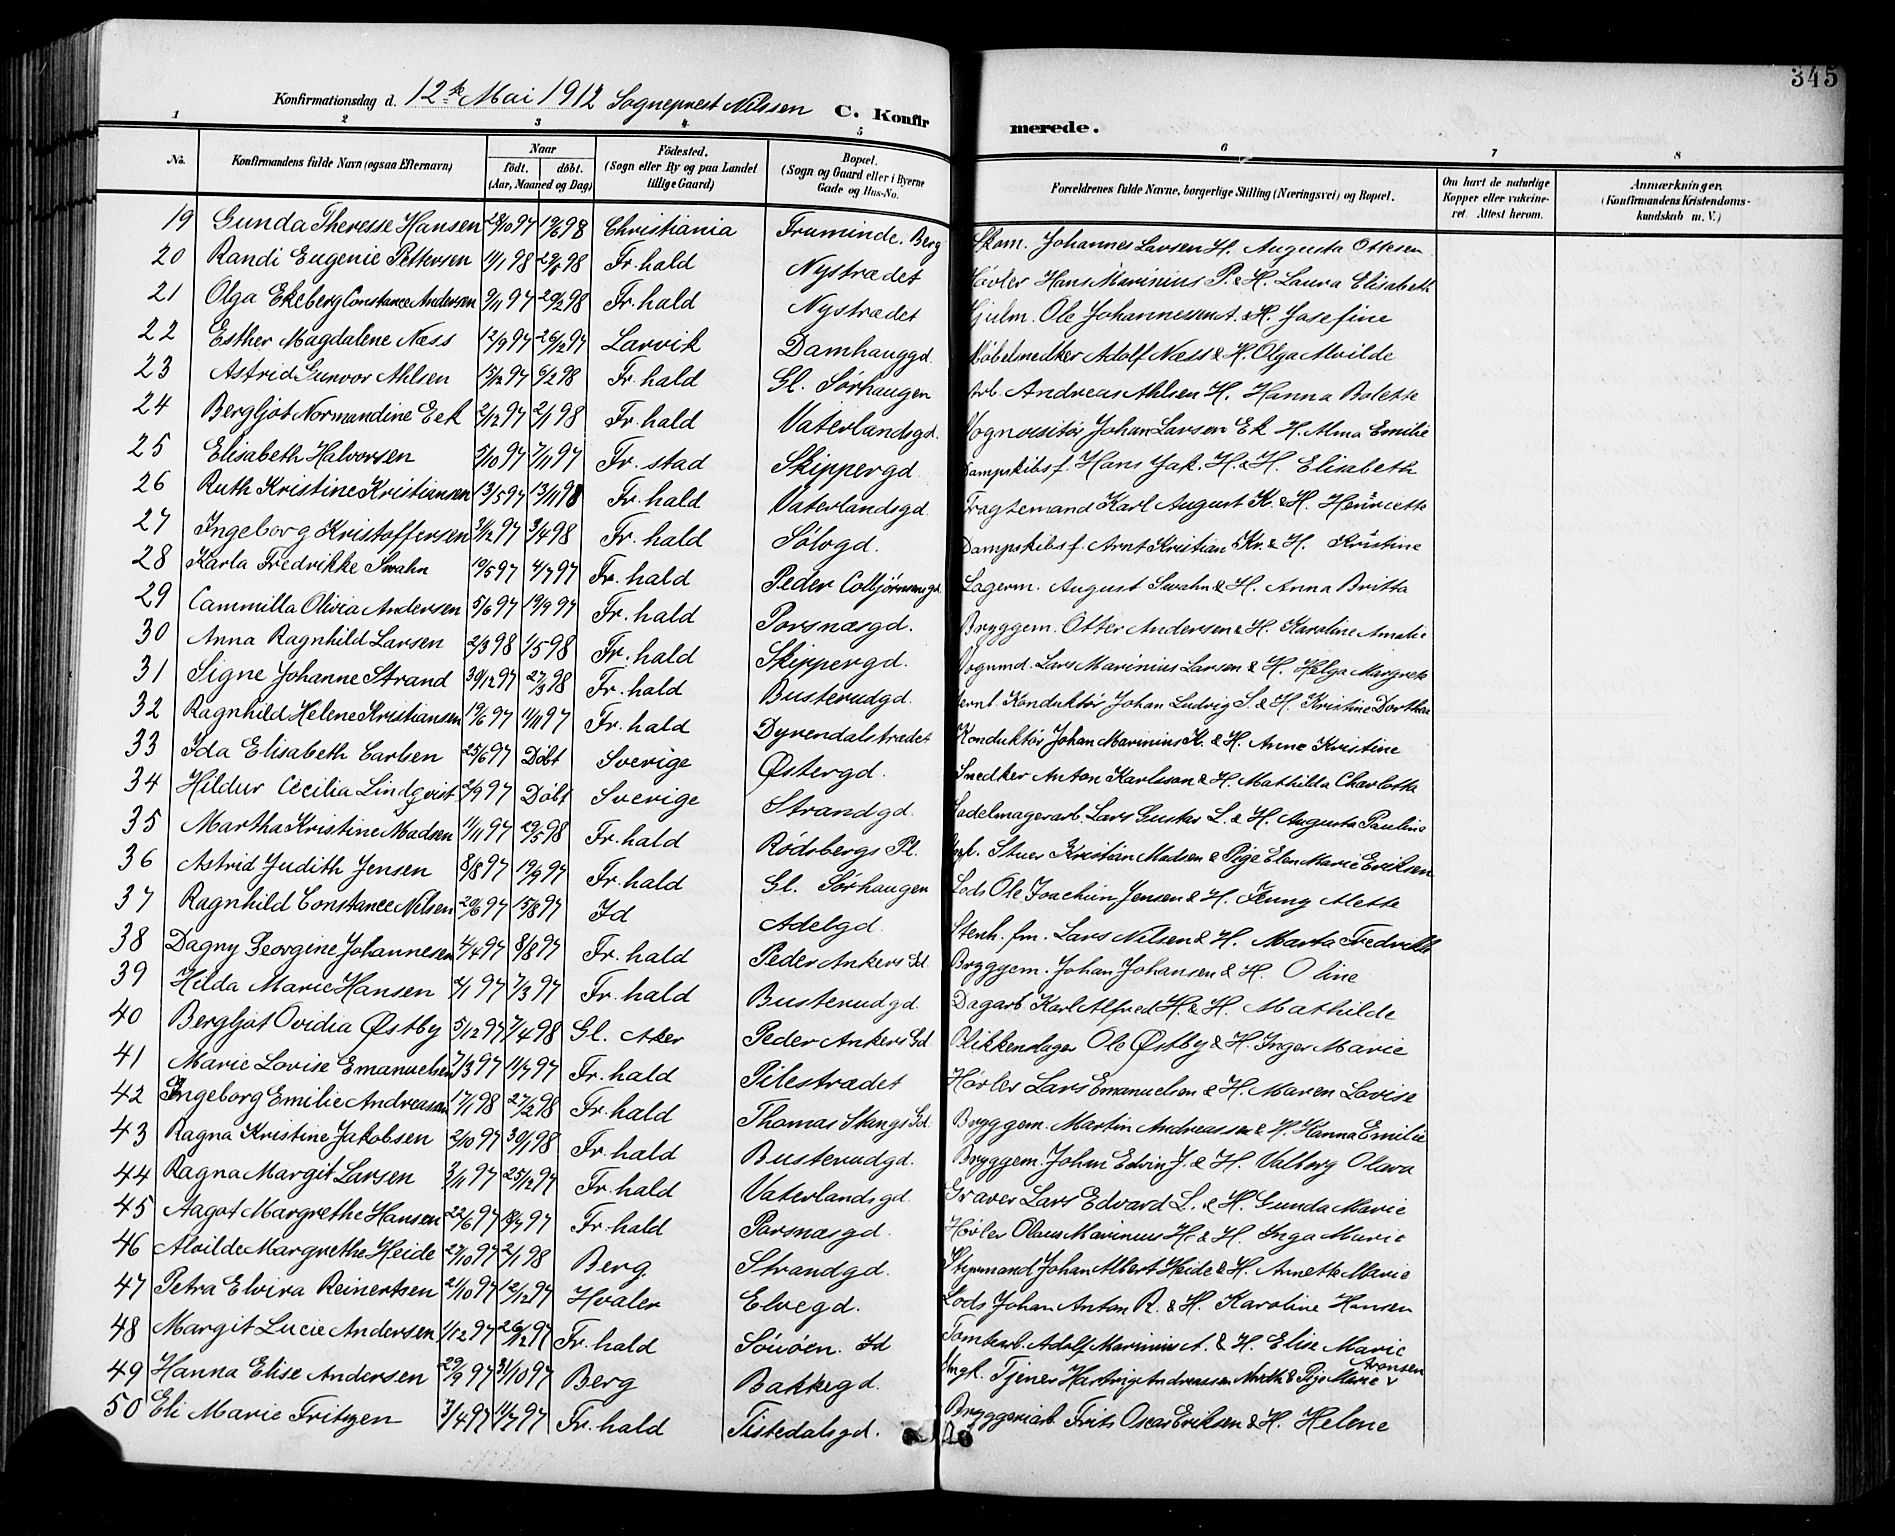 345
Konfirmationsdag d. 12te Mai 1912 Sogneprest Nilssen C. Konfirmerede.
1 2 3 4 5 6 7 8
No. Konfirmandens fulde Navn (ogsaa Efternavn) Naar födt. döbt. (Aar, Maaned og Dag) Födested. (Sogn eller By og paa Landet tillige Gaard) Bopæl. (Sogn og Gaard eller i Byerne Gade og Hus-No. Forældrenes fulde Navne, borgerlige Stilling (Næringsvei) og Bopæl. Om havt de naturlige Kopper eller vakcineret. Attest herom. Anmærkninger. (Konfirmandens Kristendomskundskab m. V.)
19 Gunda Theresse Hansen 28/10 97 19/6 98 Christiania Fruminde. Berg Skom. Johannes Larsen H. Augusta Ottesen
20 Randi Eugenie Pettersen 11/1 98 29/5 98 Fr. hald Nystrædet Høvler Hans Marinius P. & H. Laura Elisabeth
21 Olga Ekeberg Constance Andersen 9/11 97 20/2 98 Fr. hald Nystrædet Hjulm. Ole Johannessen A. & H. Josefine
22 Esther Magdalene Næss 12/9 97 26/12 97 Larvik Damhauggd. Møbelsnedker Adolf Næss & H. Olga Alvilde
23 Astrid Gunvor Ahlsen 15/12 97 6/2 98 Fr. hald Gl. Sørhaugen Arb. Andreas Ahlsen H. Hanna Bolette
24 Bergljot Normandine Eek 2/12 97 2/1 98 Fr. hald Vaterlandsgd. Vognvisitør Johan Larsen Ek H. Alma Emilie
25 Elisabeth Halvorsen 5/10 97 7/11 97 Fr. stad Skippergd. Dampskibsf. Hans Jak. H. & H. Elisabeth
26 Ruth Kristine Kristiansen 13/5 97 13/11 98 Fr. hald Vaterlandsgd. Fragtemand Karl August K. & H. Henriette
27 Ingeborg Kristoffersen 31/12 97 3/4 98 Fr. hald Sølvgd. Dampskibsf. Arnt Kristian Kr. & H. Kristine
28 Karla Fredrikke Swahn 19/5 97 4/7 97 Fr. hald Peder Colbjørnsensgd. Lagerm. August Swahn & H. Anna Britta
29 Cammilla Olivia Andersen 5/6 97 19/9 97 Fr. hald Porsnæsgd. Bryggem. Otter Andersen & H. Karoline Amalie
30 Anna Ragnhild Larsen 2/3 98 1/5 98 Fr. hald Skippergd. Vognmd. Lars Marinius Larsen & H. Helga Margrete
31 Signe Johanne Strand 30/12 97 27/3 98 Fr. hald Busterudgd. Jernb. Konduktør Johan Ludvig S. & H. Kristine Dorthea
32 Ragnhild Helene Kristiansen 19/6 97 11/11 97 Fr. hald Dyrendalstrædet Konduktør Johan Marinius K. & H. Anne Kristine
33 Ida Elisabeth Carlsen 25/6 97 Døbt Sverige Østergd. Snedker Anton Karlsson & H. Mathilda Charlotta
34 Hildur Cecilia Lindqvist 2/9 97 Døbt Sverige Strandgd. Sadelmagerarb. Lars Gustav L. & H. Augusta Pauline
35 Martha Kristine Madsen 11/11 97 29/5 98 Fr. hald Rødsbergs Pl. Ungk. Stuer Kristian Madsen & Pige Elen Marie Eriksen
36 Astrid Judith Jensen 8/8 97 19/9 97 Fr. hald Gl. Sørhaugen Lods Ole Joachim Jensen & H. Jenny Alette
37 Ragnhild Constance Nilsen 20/6 97 15/8 97 Id Adelgd. Stenh. fm. Lars Nilsen & H. Marta Fredrikke
38 Dagny Georgine Johannesen 4/4 97 8/8 97 Fr. hald Peder Ankers Gd. Bryggem. Johan Johansen & H. Oline
39 Hilda Marie Hansen 2/1 97 7/3 97 Fr. hald Busterudgd. Dagarb. Karl Alfred H. & H. Mathilde
40 Bergljot Ovidia Østby 5/12 97 7/4 98 Gl. Aker Peder Ankers Gd. Blikkenslager Ole Østby & H. Inger Marie
41 Marie Lovise Emanuelsen 7/3 97 11/7 97 Fr. hald Pilestrædet Høvler Lars Emanuelsen & H. Maren Lovise
42 Ingeborg Emilie Andreassen 17/1 98 27/2 98 Fr. hald Thomas Stangs Gd. Bryggem. Martin Andreassen & H. Hanna Emilie
43 Ragna Kristine Jakobsen 2/10 97 30/1 98 Fr. hald Busterudgd. Bryggem. Johan Edvin J. & H. Valborg Olava
44 Ragna Margit Larsen 3/11 97 25/12 97 Fr. hald Vaterlandsgd. Graver Lars Edvard L. & H. Gunda Marie
45 Aagot Margrethe Hansen 22/6 97 18/7 97 Fr. hald Porsnæsgd. Høvler Olaus Marinius H. & H. Inga Marie
46 Alvilde Margrethe Heide 27/10 97 2/1 98 Berg Strandgd. Styrmand Johan Albert Heide & H. Annette Marie
47 Petra Elvira Reinertsen 21/10 97 12/12 97 Hvaler Elvegd. Lods Johan Anton R. & H. Karoline Hansen
48 Margit Lucie Andersen 1/12 97 26/12 97 Fr. hald Sauøen. Id Tomtearb. Adolf Marinius A. & H. Elise Marie
49 Hanna Elise Andersen 29/9 97 31/10 97 Berg Bakkegd. Ungk. Tjener Hartvig Andreassen & Pige Marie Aronsen
50 Eli Marie Fritzen 3/4 97 11/7 97 Fr. hald Tistedalsgd. Bryggeriarb. Frits Oscar Eriksen & H. Helene